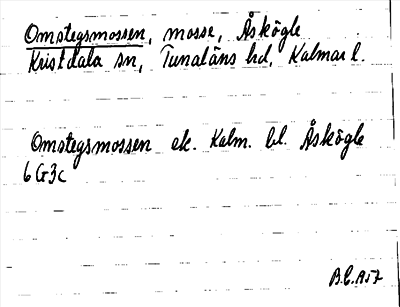 Omstegsmossen, mosse, Åskögle
Kristdala sn, Tunaläns hd, Kalmar l.
Omstegsmossen ek. Kalm. bl. Åskögle
6 G3c